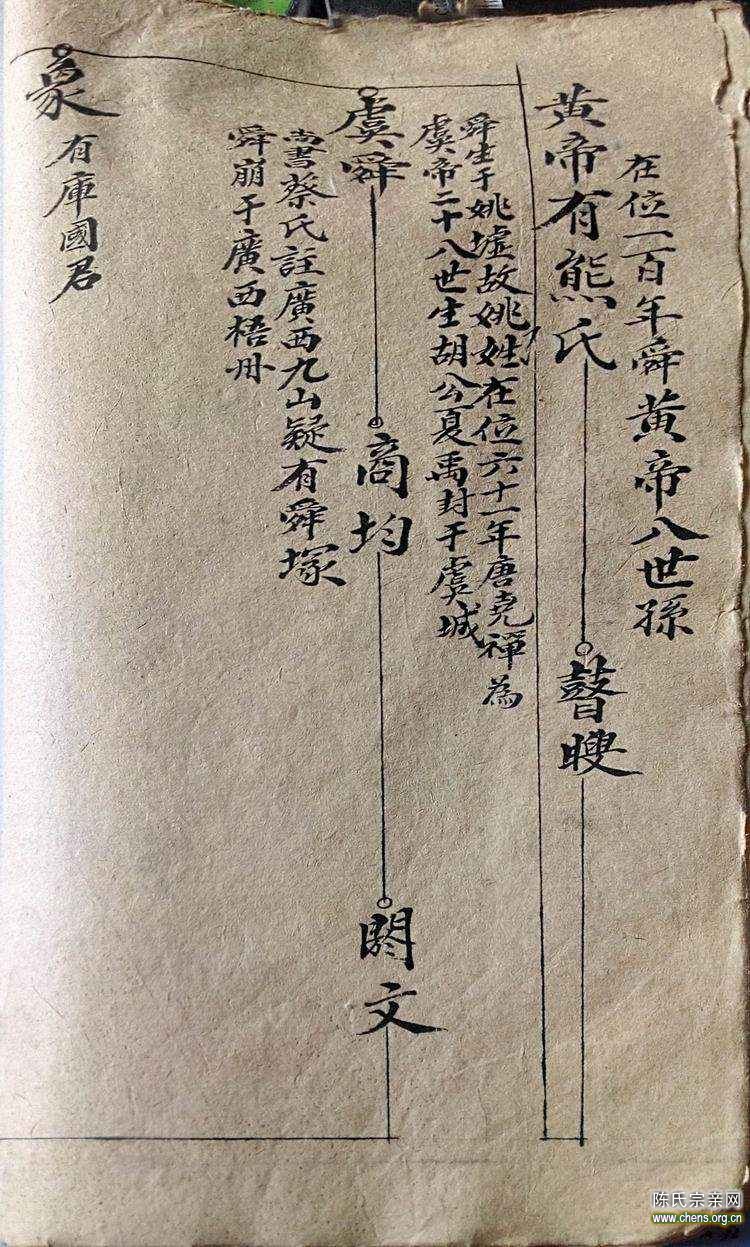 在位一百年舜黄帝八世孫
黄帝有熊氏
瞽瞍
舜生于姚墟故姚姓在位六十一年唐尧禪為
虞帝二十八世生胡公夏禹封于虞城
虞舜
商均
閼文
尚書蔡氏註廣西九山疑有舜塚
舜崩于廣西梧州
象
有庫國君
陈氏宗亲网
www.chens.org.cn